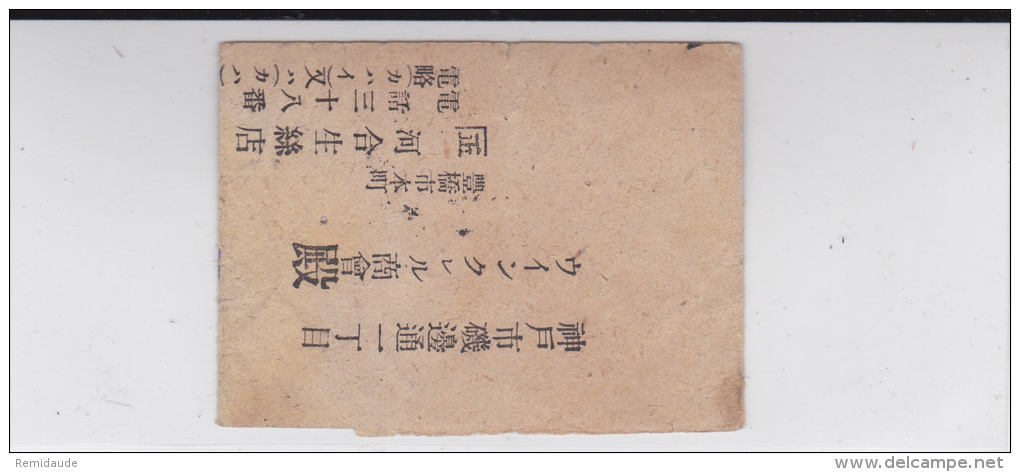 神戸市磯邊通一丁目
ウインクレル商會殿
豐橋市本町
河合生絲店
電話三十八番
電略(カハイ)又ハ(カハ)
Remidaude
www.delcampe.net